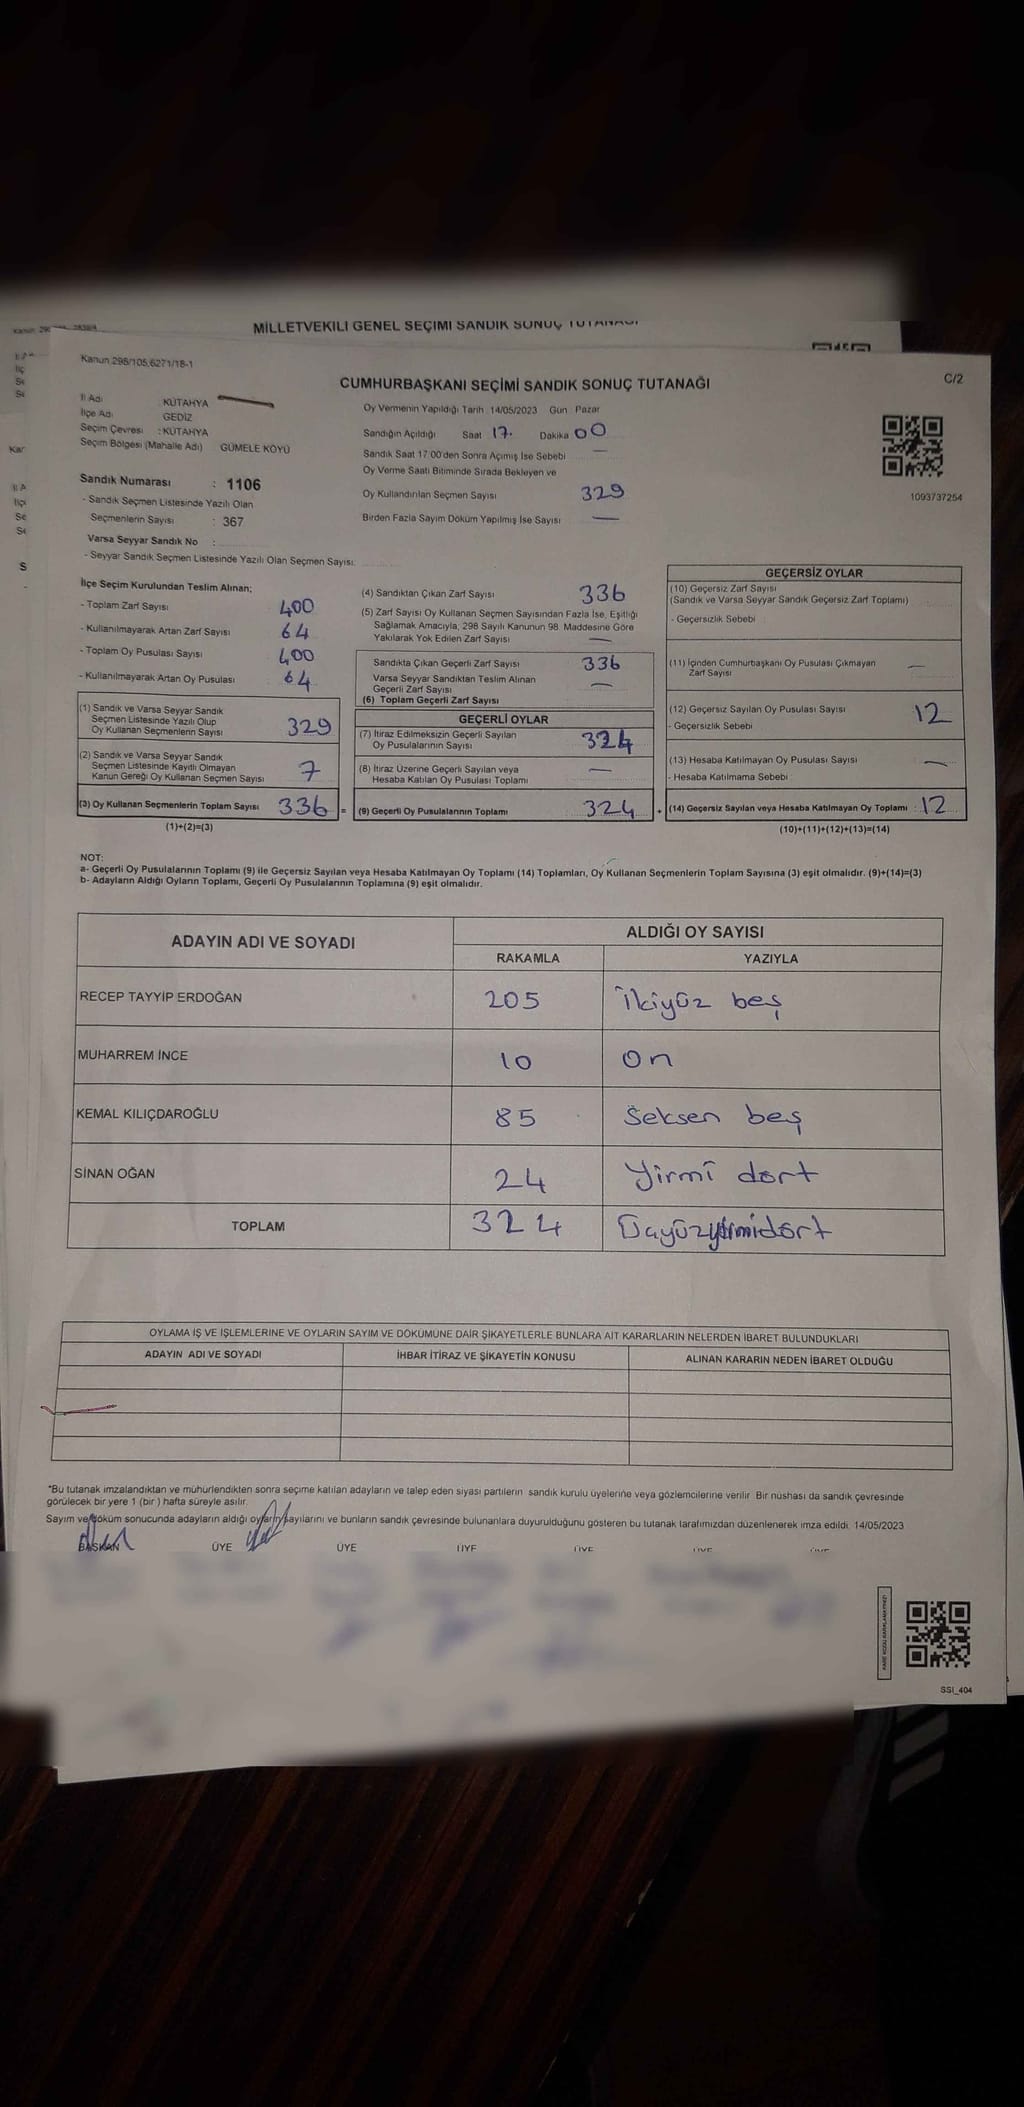 MİLLETVEKİLİ GENEL SEÇİMİ SANDIK SONUÇ TUTANAĞI
Kanun 298/105,6271/18-1
C/2
CUMHURBAŞKANI SEÇİMİ SANDIK SONUÇ TUTANAĞI
İl Adı : KÜTAHYA
İlçe Adı : GEDİZ
Seçim Çevresi : KÜTAHYA
Seçim Bölgesi (Mahalle Adı) GÜMELE KÖYÜ
Oy Vermenin Yapıldığı Tarih 14/05/2023 Gün Pazar
Sandığın Açıldığı Saat 17. Dakika 00
Sandık Saat 17:00'den Sonra Açılmış İse Sebebi —
Oy Verme Saati Bitiminde Sırada Bekleyen ve
Oy Kullandırılan Seçmen Sayısı 329
Birden Fazla Sayım Döküm Yapılmış İse Sayısı —
1093737254
Sandık Numarası : 1106
- Sandık Seçmen Listesinde Yazılı Olan
Seçmenlerin Sayısı : 367
Varsa Seyyar Sandık No :
- Seyyar Sandık Seçmen Listesinde Yazılı Olan Seçmen Sayısı:
İlçe Seçim Kurulundan Teslim Alınan;
- Toplam Zarf Sayısı 400
- Kullanılmayarak Artan Zarf Sayısı 64
- Toplam Oy Pusulası Sayısı 400
- Kullanılmayarak Artan Oy Pusulası 64
(1) Sandık ve Varsa Seyyar Sandık
Seçmen Listesinde Yazılı Olup
Oy Kullanan Seçmenlerin Sayısı 329
(2) Sandık ve Varsa Seyyar Sandık
Seçmen Listesinde Kayıtlı Olmayan
Kanun Gereği Oy Kullanan Seçmen Sayısı 7
(3) Oy Kullanan Seçmenlerin Toplam Sayısı 336 =
(1)+(2)=(3)
(4) Sandıktan Çıkan Zarf Sayısı 336
(5) Zarf Sayısı Oy Kullanan Seçmen Sayısından Fazla İse, Eşitliği
Sağlamak Amacıyla, 298 Sayılı Kanunun 98. Maddesine Göre
Yakılarak Yok Edilen Zarf Sayısı —
Sandıkta Çıkan Geçerli Zarf Sayısı 336
Varsa Seyyar Sandıktan Teslim Alınan
Geçerli Zarf Sayısı —
(6) Toplam Geçerli Zarf Sayısı
GEÇERLİ OYLAR
(7) İtiraz Edilmeksizin Geçerli Sayılan
Oy Pusulalarının Sayısı 324
(8) İtiraz Üzerine Geçerli Sayılan veya
Hesaba Katılan Oy Pusulası Toplamı —
(9) Geçerli Oy Pusulalarının Toplamı 324 +
GEÇERSİZ OYLAR
(10) Geçersiz Zarf Sayısı
(Sandık ve Varsa Seyyar Sandık Geçersiz Zarf Toplamı)
- Geçersizlik Sebebi
(11) İçinden Cumhurbaşkanı Oy Pusulası Çıkmayan
Zarf Sayısı —
(12) Geçersiz Sayılan Oy Pusulası Sayısı 12
- Geçersizlik Sebebi
(13) Hesaba Katılmayan Oy Pusulası Sayısı —
- Hesaba Katılmama Sebebi
(14) Geçersiz Sayılan veya Hesaba Katılmayan Oy Toplamı : 12
(10)+(11)+(12)+(13)=(14)
NOT:
a- Geçerli Oy Pusulalarının Toplamı (9) ile Geçersiz Sayılan veya Hesaba Katılmayan Oy Toplamı (14) Toplamları, Oy Kullanan Seçmenlerin Toplam Sayısına (3) eşit olmalıdır. (9)+(14)=(3)
b- Adayların Aldığı Oyların Toplamı, Geçerli Oy Pusulalarının Toplamına (9) eşit olmalıdır.
ADAYIN ADI VE SOYADI
ALDIĞI OY SAYISI
RAKAMLA YAZIYLA
RECEP TAYYİP ERDOĞAN 205 İkiyüz beş
MUHARREM İNCE 10 on
KEMAL KILIÇDAROĞLU 85 Seksen beş
SİNAN OĞAN 24 Yirmi dört
TOPLAM 324 Üçyüzyirmidört
OYLAMA İŞ VE İŞLEMLERİNE VE OYLARIN SAYIM VE DÖKÜMÜNE DAİR ŞİKAYETLERLE BUNLARA AİT KARARLARIN NELERDEN İBARET BULUNDUKLARI
ADAYIN ADI VE SOYADI İHBAR İTİRAZ VE ŞİKAYETİN KONUSU ALINAN KARARIN NEDEN İBARET OLDUĞU
*Bu tutanak imzalandıktan ve mühürlendikten sonra seçime katılan adayların ve talep eden siyasi partilerin sandık kurulu üyelerine veya gözlemcilerine verilir. Bir nüshası da sandık çevresinde
görülecek bir yere 1 (bir) hafta süreyle asılır.
Sayım ve döküm sonucunda adayların aldığı oyların sayılarını ve bunların sandık çevresinde bulunanlara duyurulduğunu gösteren bu tutanak tarafımızdan düzenlenerek imza edildi. 14/05/2023
BAŞKAN ÜYE ÜYE ÜYE ÜYE ÜYE ÜYE
SSI_404